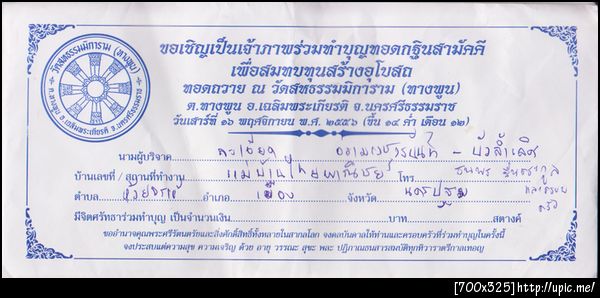 ขอเชิญเป็นเจ้าภาพร่วมทำบุญทอดกฐินสามัคคี
เพื่อสมทบทุนสร้างอุโบสถ
ทอดถวาย ณ วัดสุทธรรมมิการาม (ทางพูน)
ต.ทางพูน อ.เฉลิมพระเกียรติ จ.นครศรีธรรมราช
วันเสาร์ที่ ๑๖ พฤศจิกายน พ.ศ. ๒๕๕๖ (ขึ้น ๑๔ ค่ำ เดือน ๑๒)
นามผู้บริจาค
บ้านเลขที่ / สถานที่ทำงาน แม่บ้าน โทร
ตำบล อำเภอ เมือง จังหวัด นครปฐม
มีจิตศรัทธาร่วมทำบุญ เป็นจำนวนเงิน บาท สตางค์
ขออำนาจคุณพระศรีรัตนตรัยและสิ่งศักดิ์สิทธิ์ทั้งหลายในสากลโลก จงดลบันดาลให้ท่านและครอบครัวที่ร่วมทำบุญในครั้งนี้
จงประสบแต่ความสุข ความเจริญ ด้วย อายุ วรรณะ สุขะ พละ ปฏิภาณธนสารสมบัติทุกทิวาราตรีกาลเทอญ
[700x325]http://upic.me/